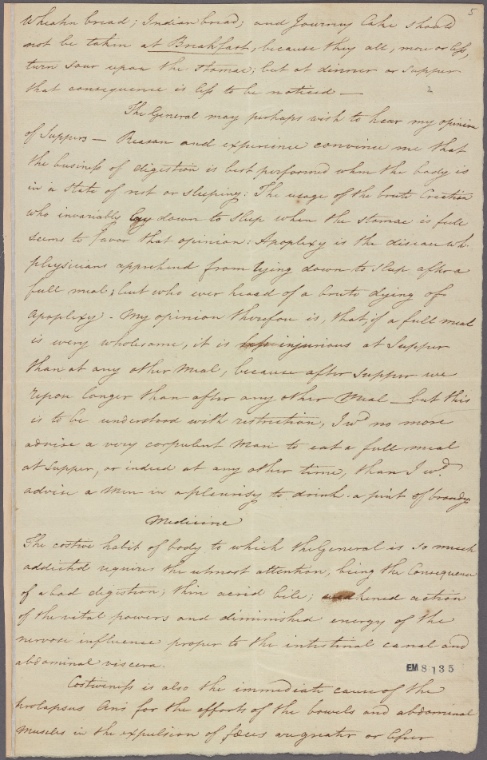 5
Wheaten bread; Indian bread; and Journey Cake should
not be taken at Breakfast, because they all, more or less,
turn sour upon the stomac; but at dinner or supper
that consequence is less to be noticed —
The General may perhaps wish to hear my opinion
of Suppers — Reason and experience convince me that
the business of digestion is best performed when the body is
in a State of rest or sleeping: The usage of the brute Creation
who invariably lay down to sleep when the stomac is full
seems to favor that opinion: Apoplexy is the disease wh.
physicians apprehend from lying down to sleep after a
full meal; but who ever heard of a brute dying of
apoplexy. - My opinion therefore is, that, if a full meal
is ever wholesome, it is less injurious at Supper
than at any other Meal, because after Supper we
repose longer than after any other Meal — But this
is to be understood with restriction, I wd. no more
advise a very corpulent Man to eat a full meal
at Supper, or indeed at any other time, than I wd.
advise a Man in a pleurisy to drink a pint of brandy
Medicine
The costive habit of body to which the General is so much
addicted requires the utmost attention, being the Consequence
of a bad digestion; thin acrid bile; weakened action
of the vital powers and diminished energy of the
nervose influence proper to the intestinal canal and
abdominal viscera.
EM 8135
Costiveness is also the immediate cause of the
prolapsus Ani for the efforts of the bowels and abdominal
muscles in the expulsion of fœces are greater or lesser